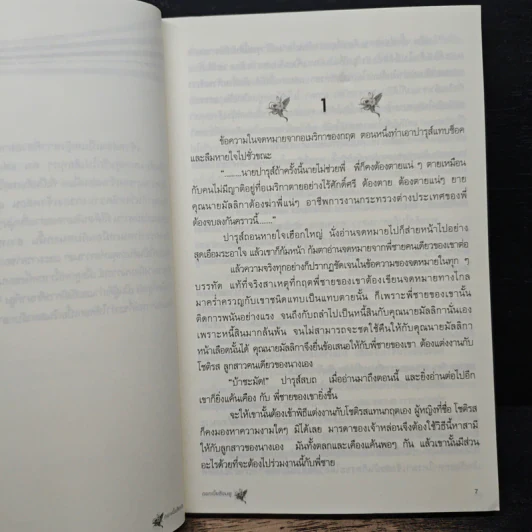 1
ข้อความในจดหมายจากอเมริกาของกฤต ตอนหนึ่งทำเอาปารุส์แทบช็อค
และลืมหายใจไปชั่วขณะ
“.......นายปารุส์ถ้าครั้งนี้นายไม่ช่วยพี่ พี่ก็คงต้องตายแน่ ๆ ตายเหมือน
กับคนไม่มีญาติอยู่ที่อเมริกาตายอย่างไร้ศักดิ์ศรี ต้องตาย ต้องตายแน่ๆ ยาย
คุณนายมัลลิกาต้องฆ่าพี่แน่ๆ อาชีพการงานกระทรวงต่างประเทศของพี่
ต้องจบลงกันคราวนี้......”
ปารุส์ถอนหายใจเฮือกใหญ่ นั่งอ่านจดหมายไปก็ส่ายหน้าไปอย่าง
สุดเอือมระอาใจ แล้วเขาก็ก้มหน้า ก้มตาอ่านจดหมายจากพี่ชายคนเดียวของเขาต่อ
แล้วความจริงทุกอย่างก็ปรากฏชัดเจนในข้อความของจดหมายในทุก ๆ
บรรทัด แท้ที่จริงสาเหตุที่กฤตพี่ชายของเขาต้องเขียนจดหมายทางไกล
มาคร่ำครวญกับเขาชนิดแทบเป็นแทบตายนั้น ก็เพราะพี่ชายของเขานั้น
ติดการพนันอย่างแรง จนถึงกับถลำไปเป็นหนี้สินกับคุณนายมัลลิกานั่นเอง
เพราะหนี้สินมากล้นพ้น จนไม่สามารถจะชดใช้คืนให้กับคุณนายมัลลิกา
หน้าเลือดนั้นได้ คุณนายมัลลิกาจึงยื่นข้อเสนอให้กับพี่ชายของเขา ต้องแต่งงานกับ
โชติรส ลูกสาวคนเดียวของนางเอง
“บ้าชะมัด!” ปารุส์สบถ เมื่ออ่านมาถึงตอนนี้ และยิ่งอ่านต่อไปอีก
เขาก็ยิ่งแค้นเคือง กับ พี่ชายของเขายิ่งขึ้น
จะให้เขานั้นต้องเข้าพิธีแต่งงานกับโชติรสแทนกฤตเอง ผู้หญิงที่ชื่อ โชติรส
ก็คงมองหาความงามใดๆ มิได้เลย มารดาของเจ้าหล่อนจึงต้องใช้วิธีนี้หาสามี
ให้กับลูกสาวของนางเอง มันทั้งตลกและเคืองแค้นพอๆ กัน แล้วเขานั้นมีส่วน
อะไรด้วยที่จะต้องไปร่วมงานนี้กับพี่ชาย
7